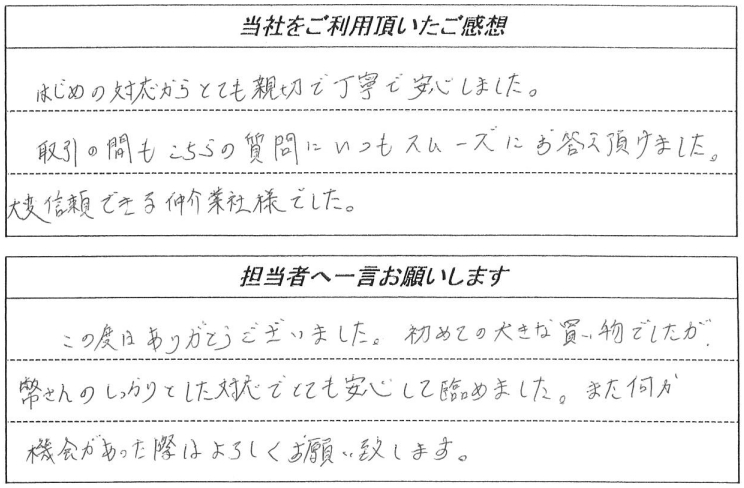 当社をご利用頂いたご感想
はじめの対応からとても親切で丁寧で安心しました。
取引の間もこちらの質問にいつもスムーズにお答え頂けました。
大変信頼できる仲介業社様でした。
担当者へ一言お願いします
この度はありがとうございました。初めての大きな買い物でしたが、
幣さんのしっかりとした対応でとても安心して臨めました。また何か
機会があった際はよろしくお願い致します。